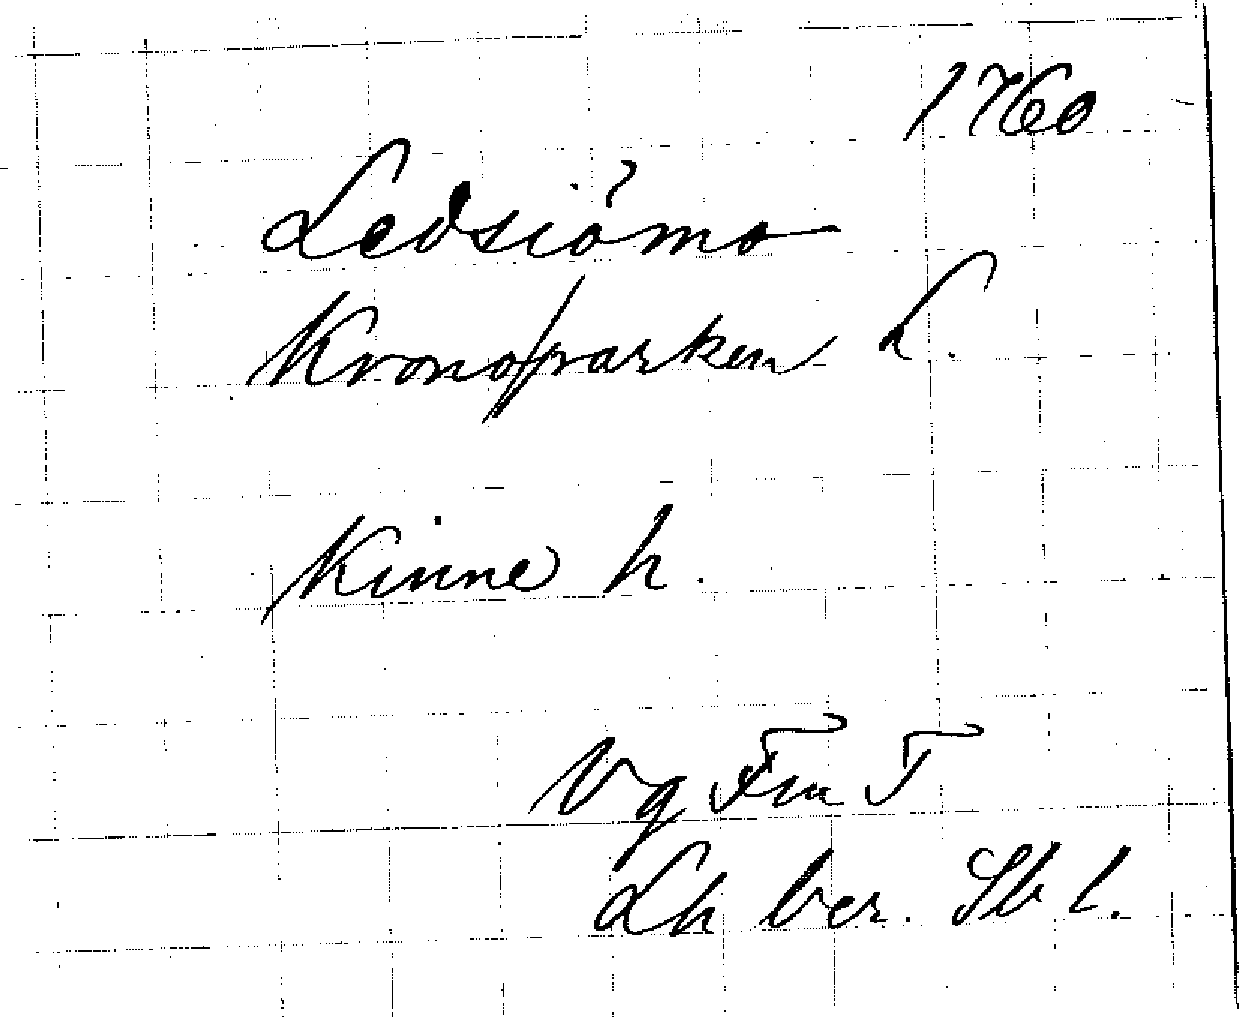 1760
Ledsiömo
Kronoparken L.
Kinne h.
Vg Fm T
Lh ber. Sk l.